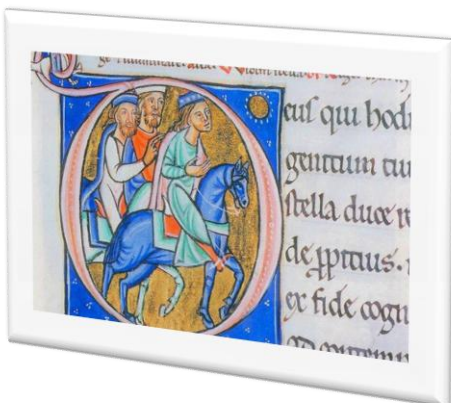 euſ qui hodi
genitum tuu
ſtella duce re
de ꝓpitius.
ex fide cogn
ad contem